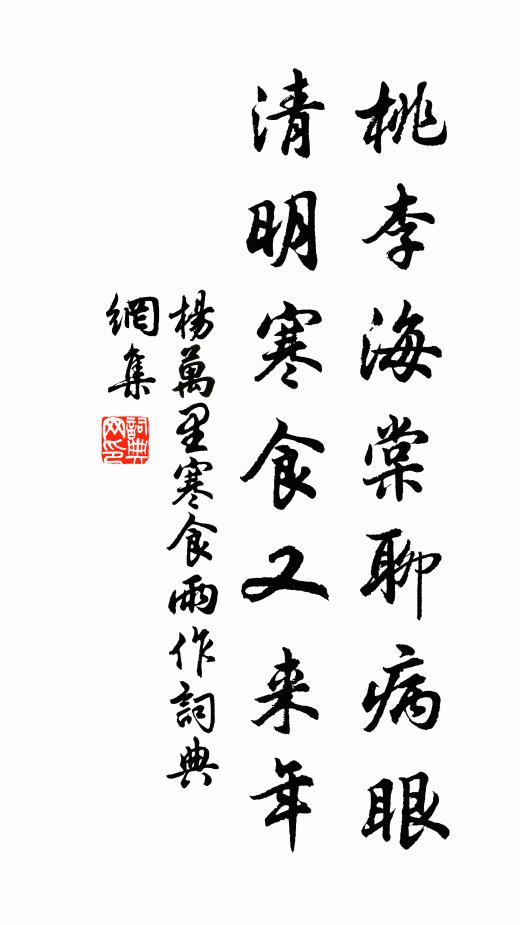 桃李海棠聊病眼
清明寒食又来年
楊萬里寒食雨作詞典
網集
詞典
网印